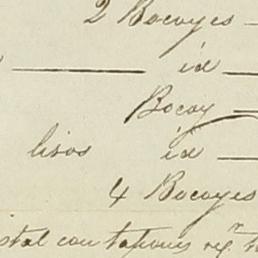 2 Bocoyes
id
Bocoy
lisos id
4 Bocoyes
istal con tapones